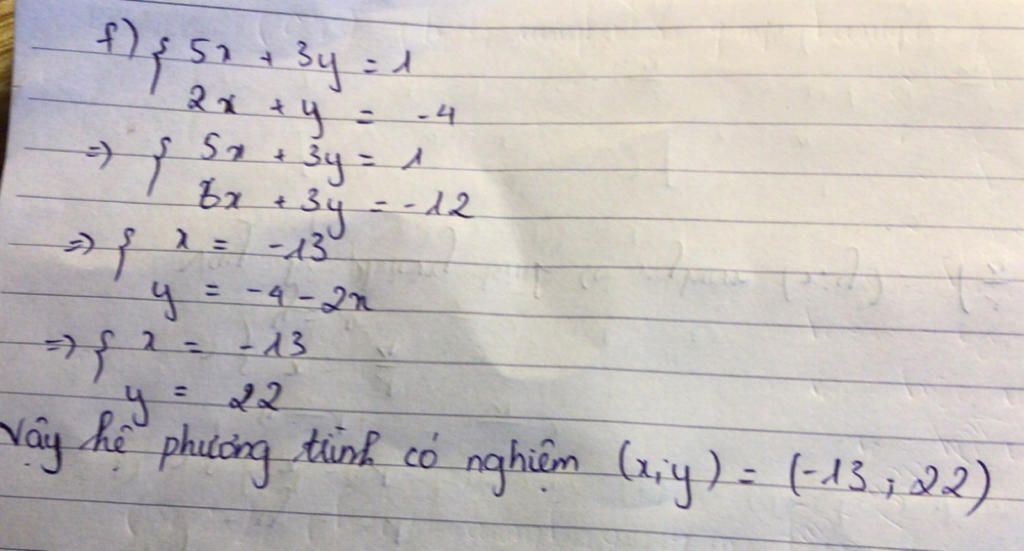 f) { 5x + 3y = 1
2x + y = -4
=> { 5x + 3y = 1
6x + 3y = -12
=> { x = -13
y = -4 - 2x
=> { x = -13
y = 22
Vậy hệ phương trình có nghiệm (x;y) = (-13; 22)